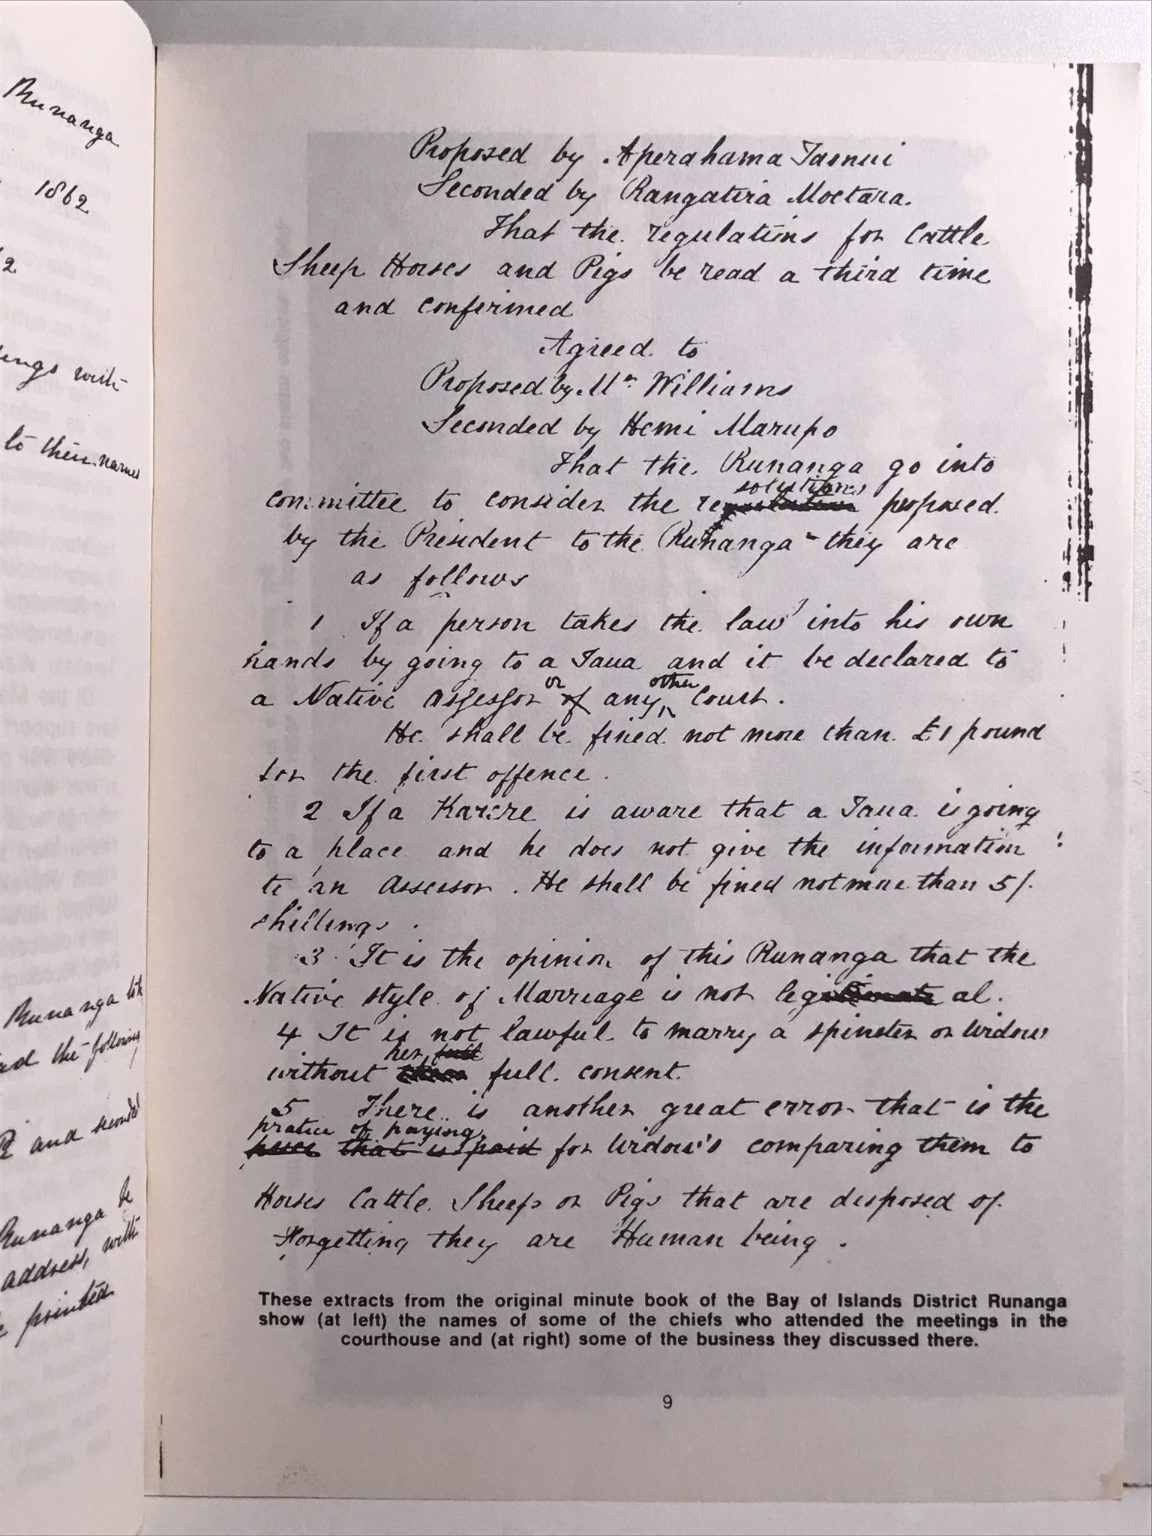 Runanga
1862
2
ings with
to their names
Runanga
the following
and seconded
Runanga be
address, with
printed
Proposed by Aperahama Taonui
Seconded by Rangatira Moetara.
That the regulations for Cattle
Sheep Horses and Pigs be read a third time
and confirmed
Agreed to
Proposed by Mr. Williams
Seconded by Hemi Marupo
That the Runanga go into
solutions
committee to consider the re proposed
by the President to the Runanga - they are
as follows
1 If a person takes the law into his own
hands by going to a Taua and it be declared to
or other
a Native Assessor of any Court.
He shall be fined not more than £1 pound
for the first offence.
2 If a Karere is aware that a Taua is going
to a place and he does not give the information
to an Assessor. He shall be fined not more than 5/.
shillings.
3 It is the opinion of this Runanga that the
Native style of Marriage is not legitimate al.
4 It is not lawful to marry a spinster or widow
her full
without full consent.
5 There is another great error that is the
pratice of paying
price that is paid for Widow's comparing them to
Horses Cattle Sheep or Pigs that are disposed of
Forgetting they are Human being.
These extracts from the original minute book of the Bay of Islands District Runanga
show (at left) the names of some of the chiefs who attended the meetings in the
courthouse and (at right) some of the business they discussed there.
9